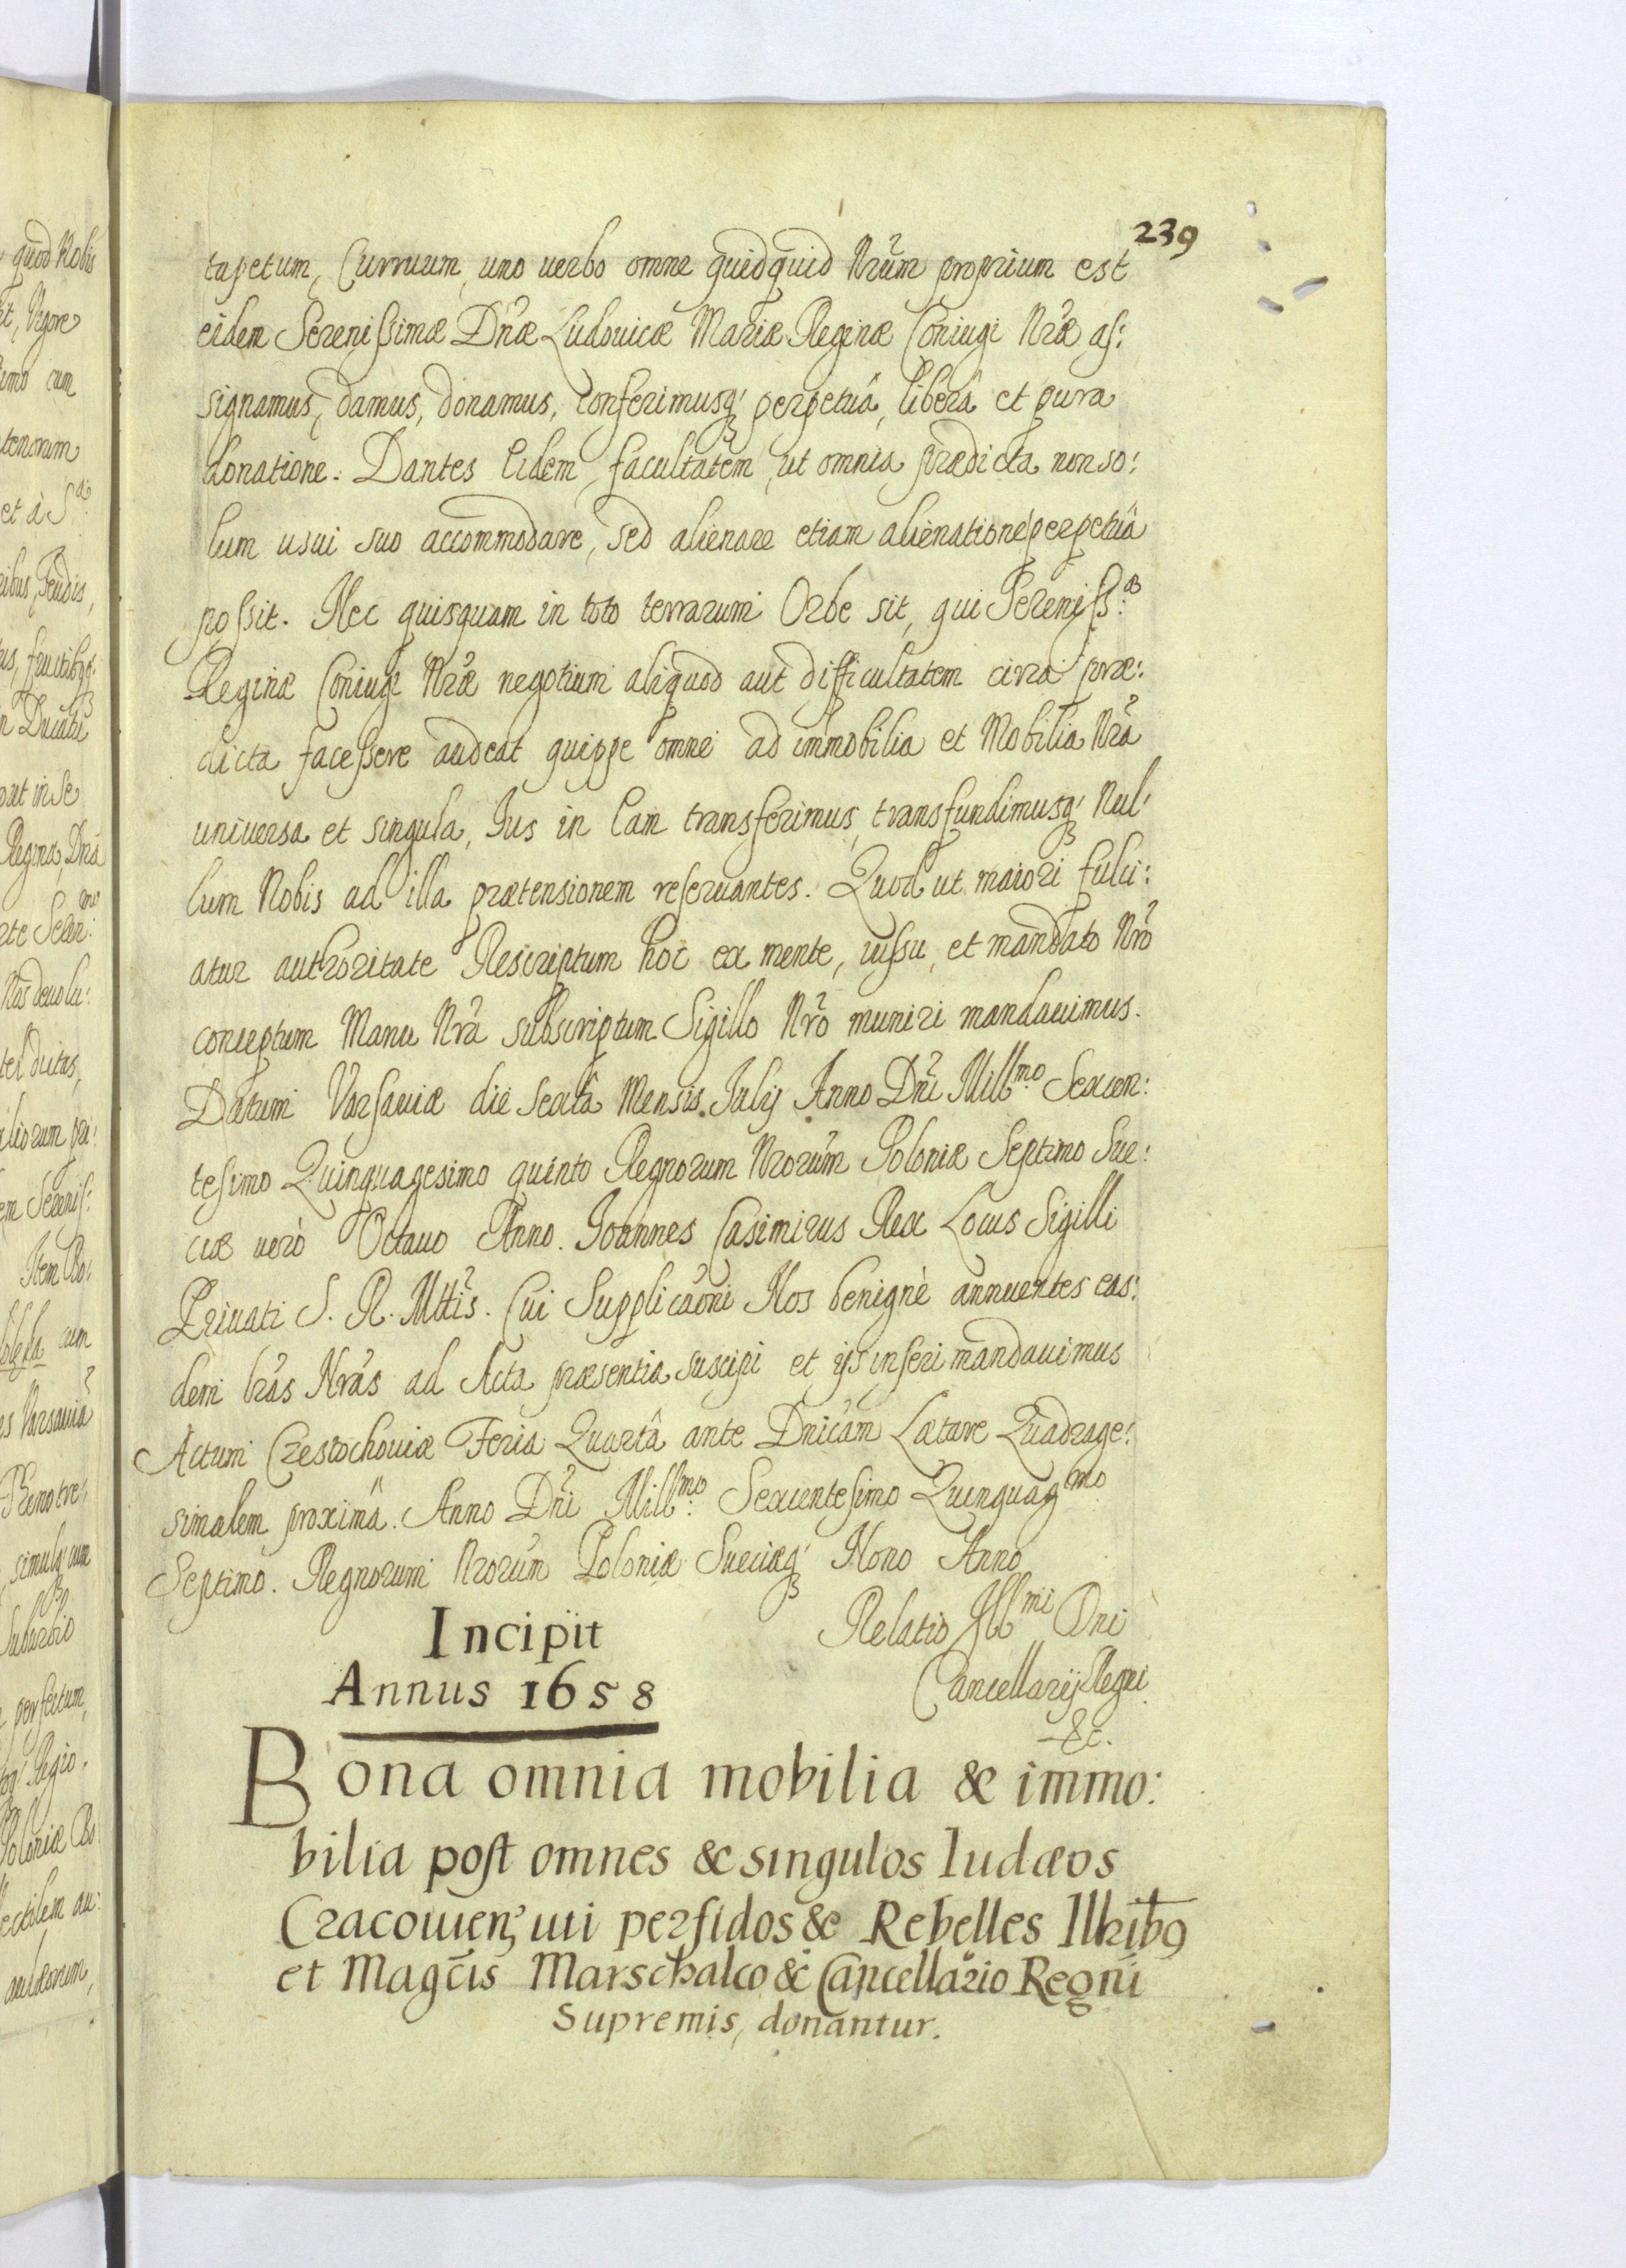 239
tapetum, Curruum, uno uerbo omne quidquid Nr̃um proprium est
eidem Serenissimæ Dñæ Ludouicæ Mariæ Reginæ Coniugi Nr̃æ as:
signamus, damus, donamus, conferimusq; perpetuâ, liberâ et pura
donatione. Dantes Eidem, facultatem, ut omnia prædicta non so:
lum usui suo accommodare, sed alienare etiam alienatione perpetuâ
possit. Nec quisquam in toto terrarum Orbe sit, qui Sereniss:æ
Reginæ Coniugi Nr̃æ negotium aliquod aut difficultatem circa præ:
dicta facessere audeat quippe omne ad immobilia et Mobilia Nr̃a
uniuersa et singula, Ius in Eam transferimus, transfundimusq; Nul:
lum Nobis ad illa prætensionem reseruantes. Quod ut maiori fulci:
atur authoritate Rescriptum hoc ex mente, iussu, et mandato Nr̃o
conceptum Manu Nr̃a subscriptum Sigillo Nr̃o muniri mandauimus.
Datum Varsauiæ die sextâ Mensis Iulij Anno Dñi Mill:mo Sexcen:
tesimo Quinquagesimo quinto Regnorum Nrorũm Poloniæ Septimo Sue:
ciæ uerò Octauo Anno. Ioannes Casimirus Rex Locus Sigilli
Priuati S. R. Mttis̃. Cui Supplicãoni Nos benignè annuentes eas:
dem lrãs Nrãs ad Acta præsentia suscipi et ijs inseri mandauimus
Actum Czestochouiæ Feria Quartâ ante Dnicãm Lætare Quadrage:
simalem proximâ. Anno Dñi Mill:mo Sexcentesimo Quinquagmo
Septimo. Regnorum Nrorũm Poloniæ Sueciæq; Nono Anno
Relatio Illmi Dni
Cancellarij Regni
&c.
Incipit
Annus 1658
Bona omnia mobilia & immo:
bilia post omnes & singulos Iudæos
Cracouien̄ uti perfidos & Rebelles Illribꝰ
et Magcis Marschalco & Cancellario Regni
Supremis, donantur.